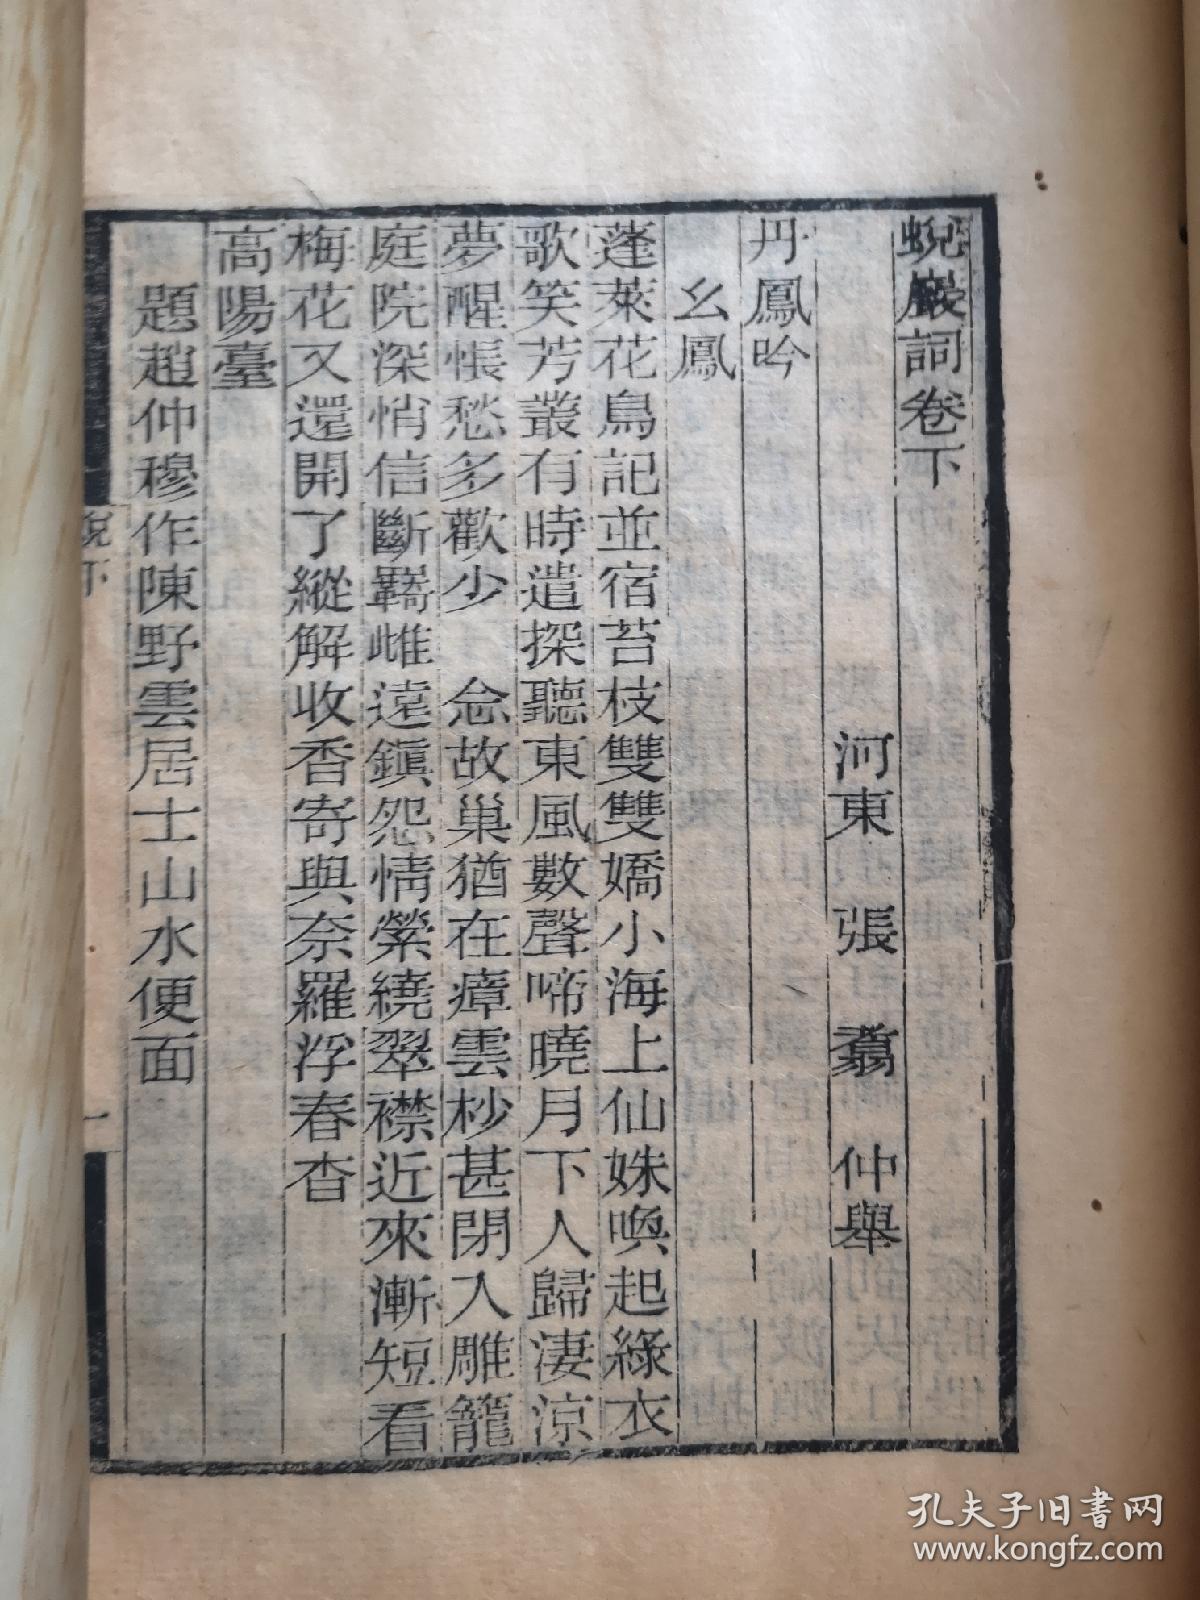 蛻巖詞卷下
河東 張 翥 仲舉
丹鳳吟
幺鳳
蓬萊花鳥記並宿苔枝雙雙嬌小海上仙姝喚起綠衣
歌笑芳叢有時遣探聽東風數聲啼曉月下人歸淒涼
夢醒悵愁多歡少 念故巢猶在瘴雲杪甚閉入雕籠
庭院深悄信斷羇雌遠鎭怨情縈繞翠襟近來漸短看
梅花又還開了縱解收香寄與奈羅浮春杳
高陽臺
題趙仲穆作陳野雲居士山水便面
蛻下
一
孔夫子旧书网
www.kongfz.com